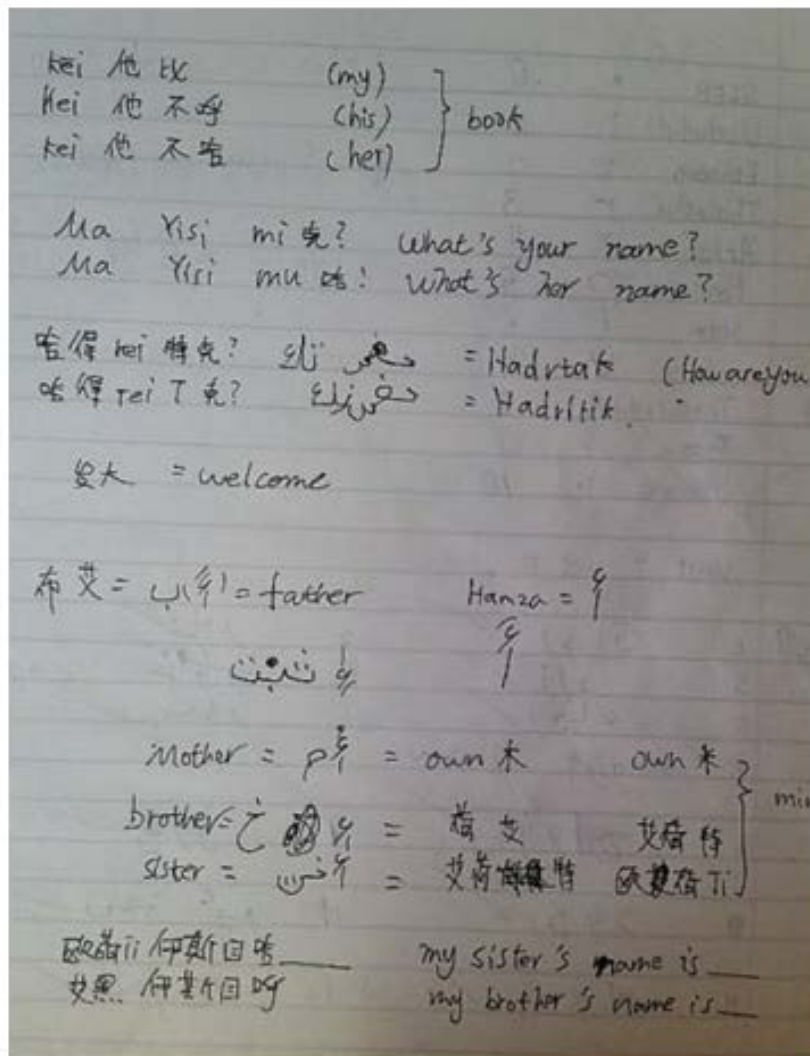 kei 他 比 (my)
Hei 他 不呼 (his) book
kei 他 不哈 (her)
Ma Yisi mi 克? What's your name?
Ma Yisi mu 哈! What's her name?
哈得 rei 特克? = Hadrtak (How are you
哈得 rei T 克? = Hadritik.
= welcome
布艾 = أب = father Hamza = أ
أ
أ
Mother = أم = own 木 own 米
brother = أ خ = 荷艾 艾荷特 min
sister = = 艾荷 特 欧 荷 Ti
欧荷ii 伊斯目哈____ my sister's name is ___
艾黑 伊斯目呼 my brother's name is ___